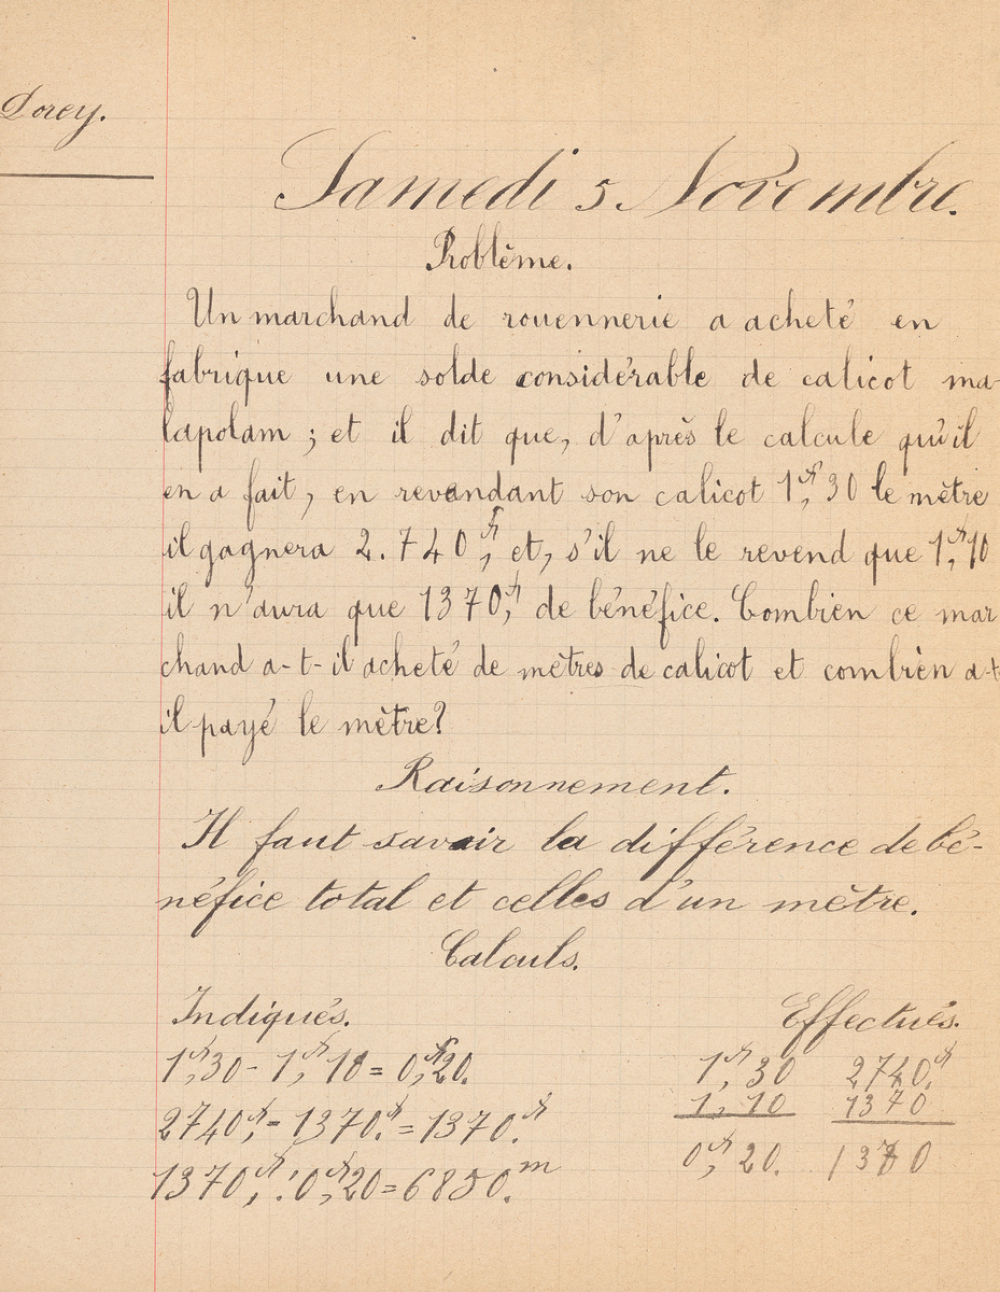 Dorey.
Samedi 5 Novembre.
Problème.
Un marchand de rouennerie a acheté en
fabrique une solde considérable de calicot ma-
lapolam ; et il dit que, d'après le calcule qu'il
en a fait, en revendant son calicot 1,fr30 le mètre
il gagnera 2.740,fr et, s'il ne le revend que 1,fr10
il n'aura que 1370,fr de bénéfice. Combien ce mar
chand a-t-il acheté de mètres de calicot et combien a-t-
il payé le mètre?
Raisonnement.
Il faut savoir la différence de bé-
néfice total et celles d'un mètre.
Calculs.
Indiqués. Effectués.
1,fr30 - 1,fr10 = 0,fr20. 1,fr30 2740,fr
2740,fr - 1370,fr = 1370,fr 1,10 1370
1370,fr : 0,fr20 = 6850.m 0,fr20. 1370